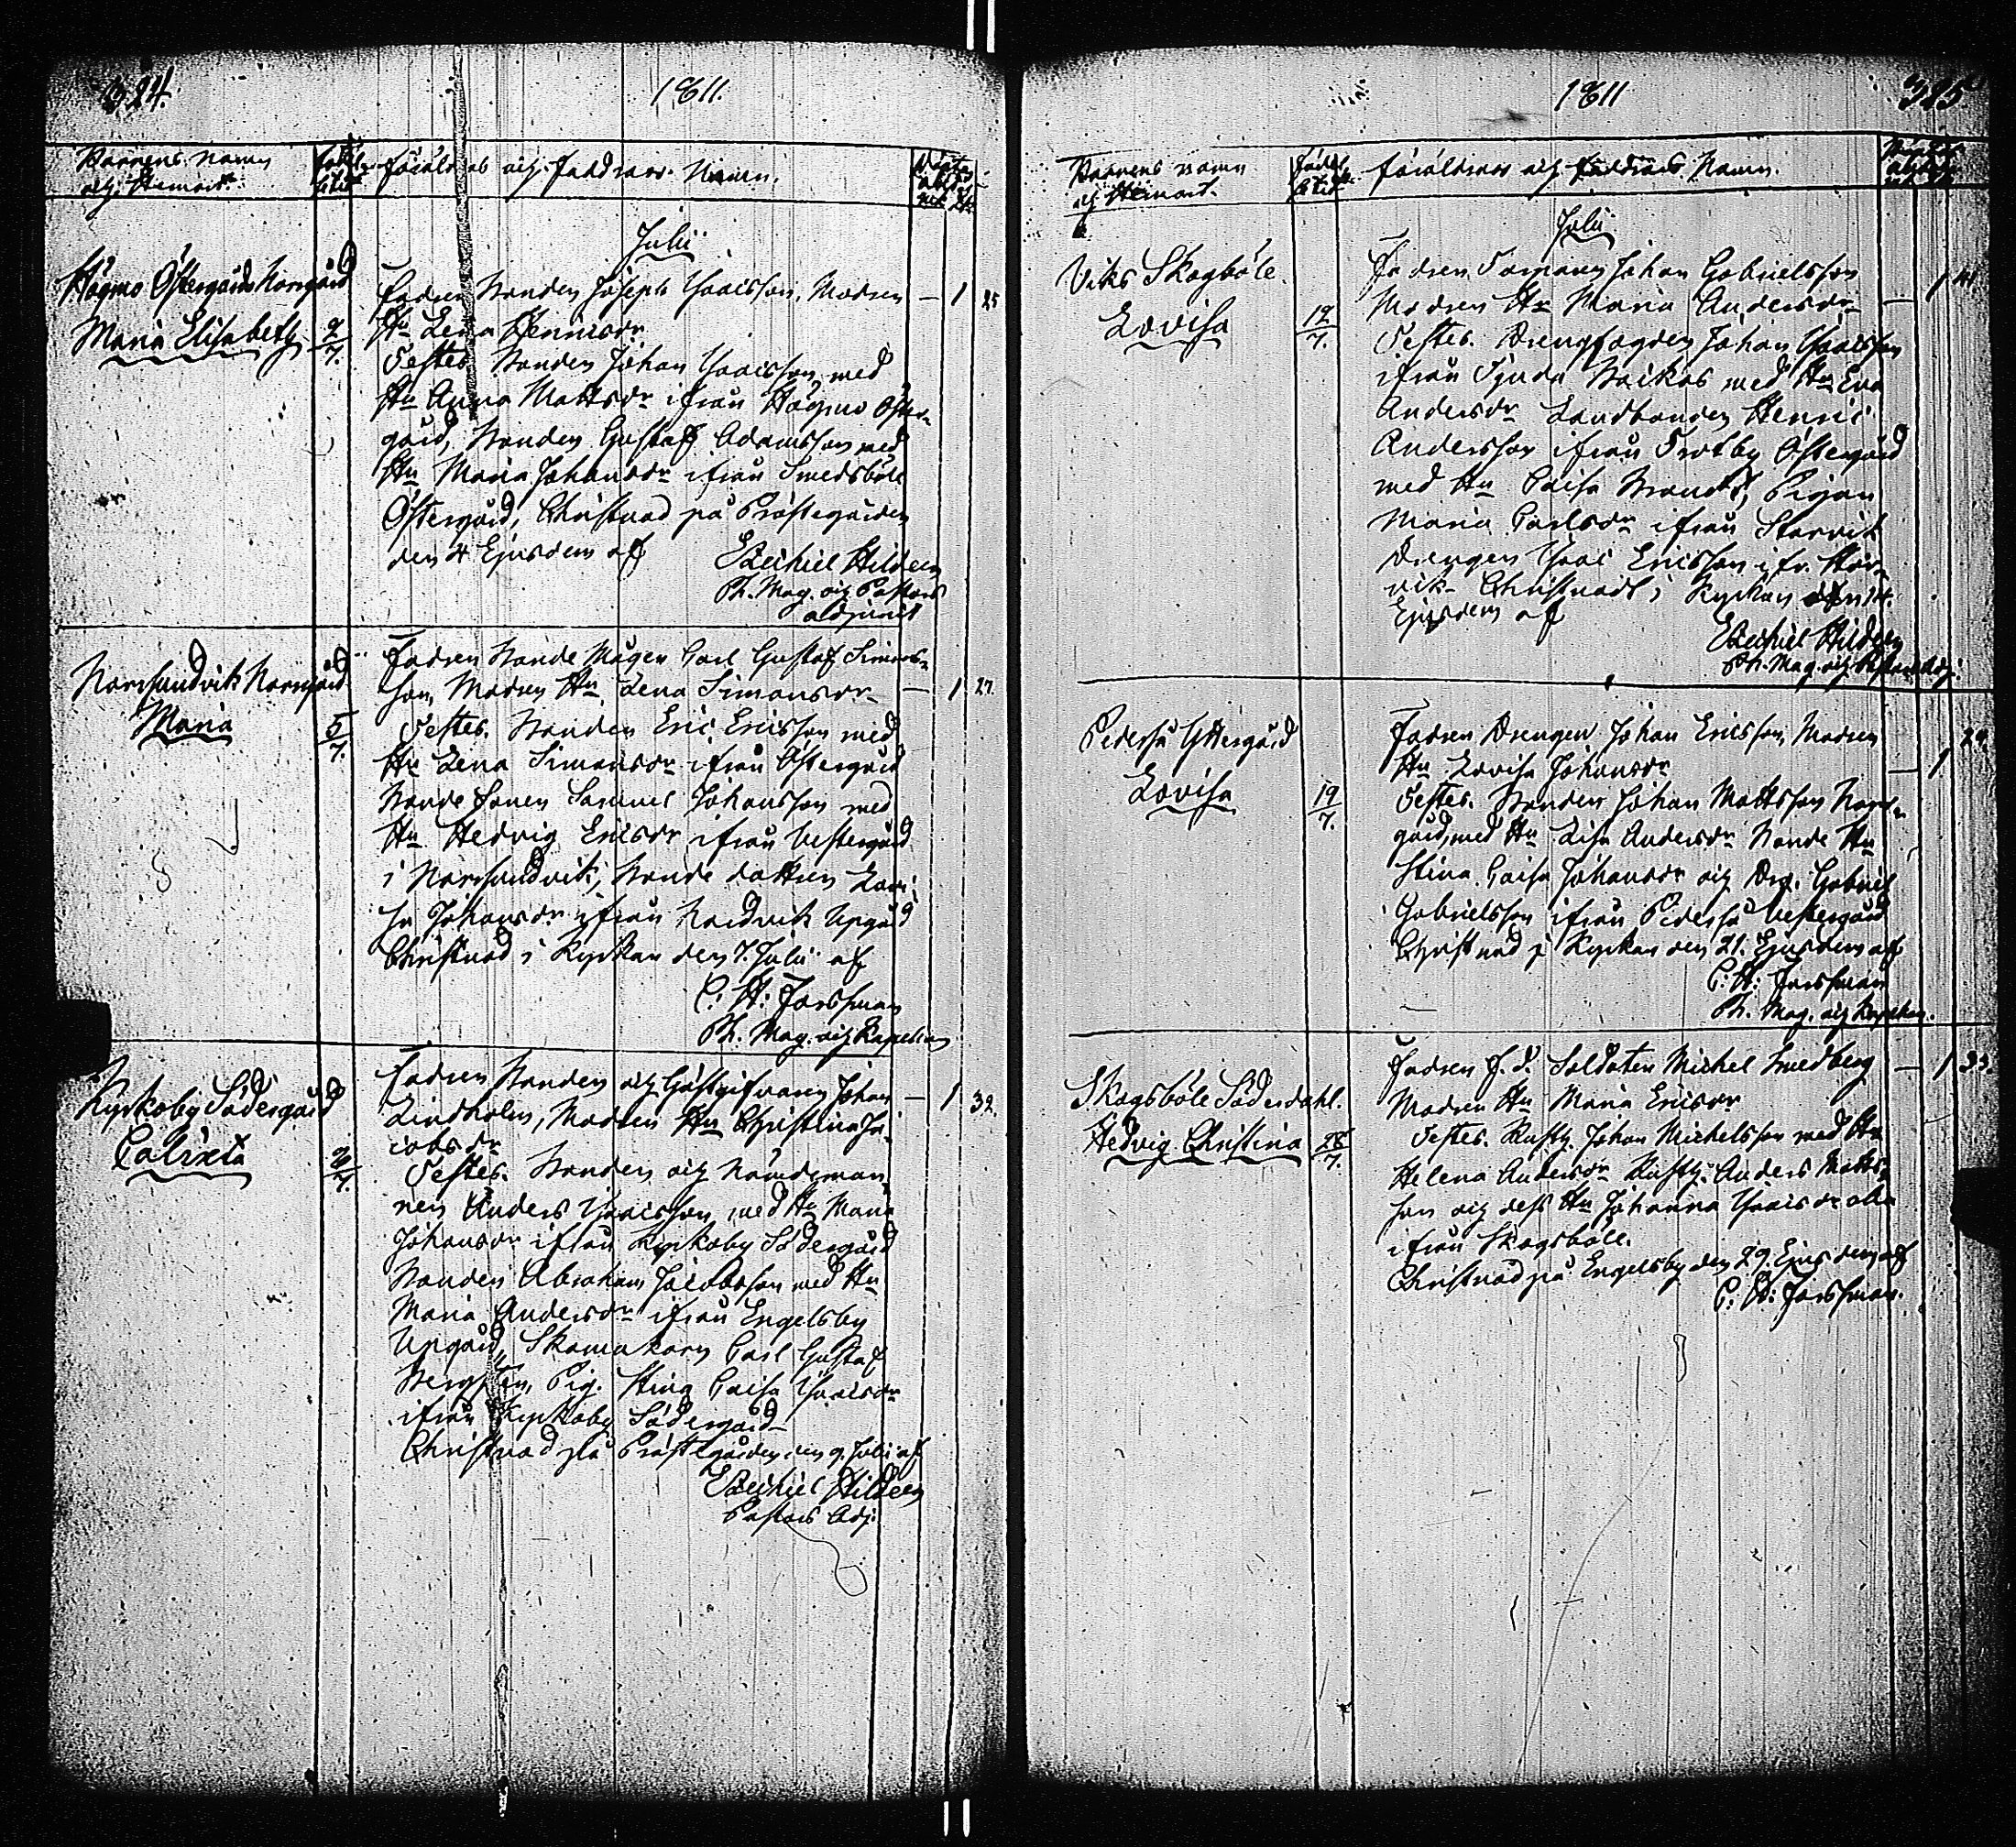 324.
1811.
Barnens namn
och Hemort.
Födel
setid
Föräldrars och Faddrars Namn.
Julii
Högmo Östergårds Norrgård
Maria Elisabeth
2/7.
Fadren Bonden Joseph Isaacsson, Modren — 1 25
Hu Lena Hennicsdr
Testes Bonden Johan Isaacsson med
Hu Anna Mattsdr ifrån Högmo Öster-
gård, Bonden Gustaf Adamsson med
Hu Maria Johansdr ifrån Smedsböle
Östergård, Christnad på Prästegården
den 4 Ejusdem af
Ezechiel Hildeen
Ph. Mag. och Pastors
adjunct
Norrsundvik Norrgård
Maria
5/7.
Fadren Bonde Mågen Carl Gustaf Simons-
son, Modren Hu Lena Simonsdr — 1 27.
Testes. Bonden Eric Ericsson med
Hu Lena Simonsdr ifrån Östergård
Bonde Sonen Samuel Johansson med
Hu Hedvig Ericsdr ifrån Vestergård
i Norrsundvik, Bonde dottren Lovi-
sa Johansdr ifrån Nordvik Upgård
Christnad i Kyrkan den 7. Julii af
C: H: Forssman
Ph. Mag. och Kapellan
Kyrkoby Södergård
Calixta
6/7.
Fadren Bonden och Gästgifvaren Johan — 1 32.
Lindholm, Modren Hu Christina Ja-
cobsdr
Testes. Bonden och Nämdeman-
nen Anders Isaacsson med Hu Maria
Johansdr ifrån Kyrkoby Södergård
Bonden Abraham Jacobsson med Hu
Maria Andersdr ifrån Engelsby
Upgård, Skomakarn Carl Gustaf
Bergsten, Pig. Stina Caisa Isaacsdr
ifrån Kyrkoby Södergård
Christnad på Prästegården den 9. Julii af
Ezechiel Hildeen
Pastors Adj.
1811
325
Barnens namn
och Hemort.
Födel
setid.
Föräldrars och Faddrars Namn.
Julii
Viks Skogböle.
Lovisa
12/7.
Fadren Torparen Johan Gabrielsson
Modren Hu Maria Andersdr — 1 41
Testes. Drengfogden Johan Isaacsson
ifrån Tjuda Backas med Hu Eva
Andersdr Landbonden Henric
Andersson ifrån Trotby Östergård
med Hu Caisa Brandt, Pigan
Maria Carlsdr ifrån Storvik
Drengen Isaac Ericsson ifr. Stor-
vik. Christnadt i Kyrkan den 14.
Ejusdem af
Ezechiel Hildeen
Ph. Mag. och Pastors Adj.
Pederså Yttergård
Lovisa
19/7.
Fadren Drengen Johan Ericsson, Modren
Hu Lovisa Johansdr — 1 29.
Testes. Bonden Johan Mattsson Norr-
gård, med Hu Lisa Andersdr Bonde Hu
Stina Caisa Johansdr och Drg. Gabriel
Gabrielsson ifrån Pederså Vestergård
Christnad i Kyrkan den 21. Ejusdem af
C: H: Forssman
Ph. Mag. och Kapellan.
Skogsböle Söderdahl.
Hedvig Christina
28/7.
Fadren f. d. Soldaten Michel Smedberg — 1 33.
Modren Hu Maria Ericsdr
Testes. Rusth. Johan Michelsson med Hu
Helena Andersdr Rusth. Anders Matts-
son och dess Hu Johanna Isaacsdr alla
ifrån Skogsböle.
Christnad på Engelsby den 29. Ejusdem af
C: H: Forssman.